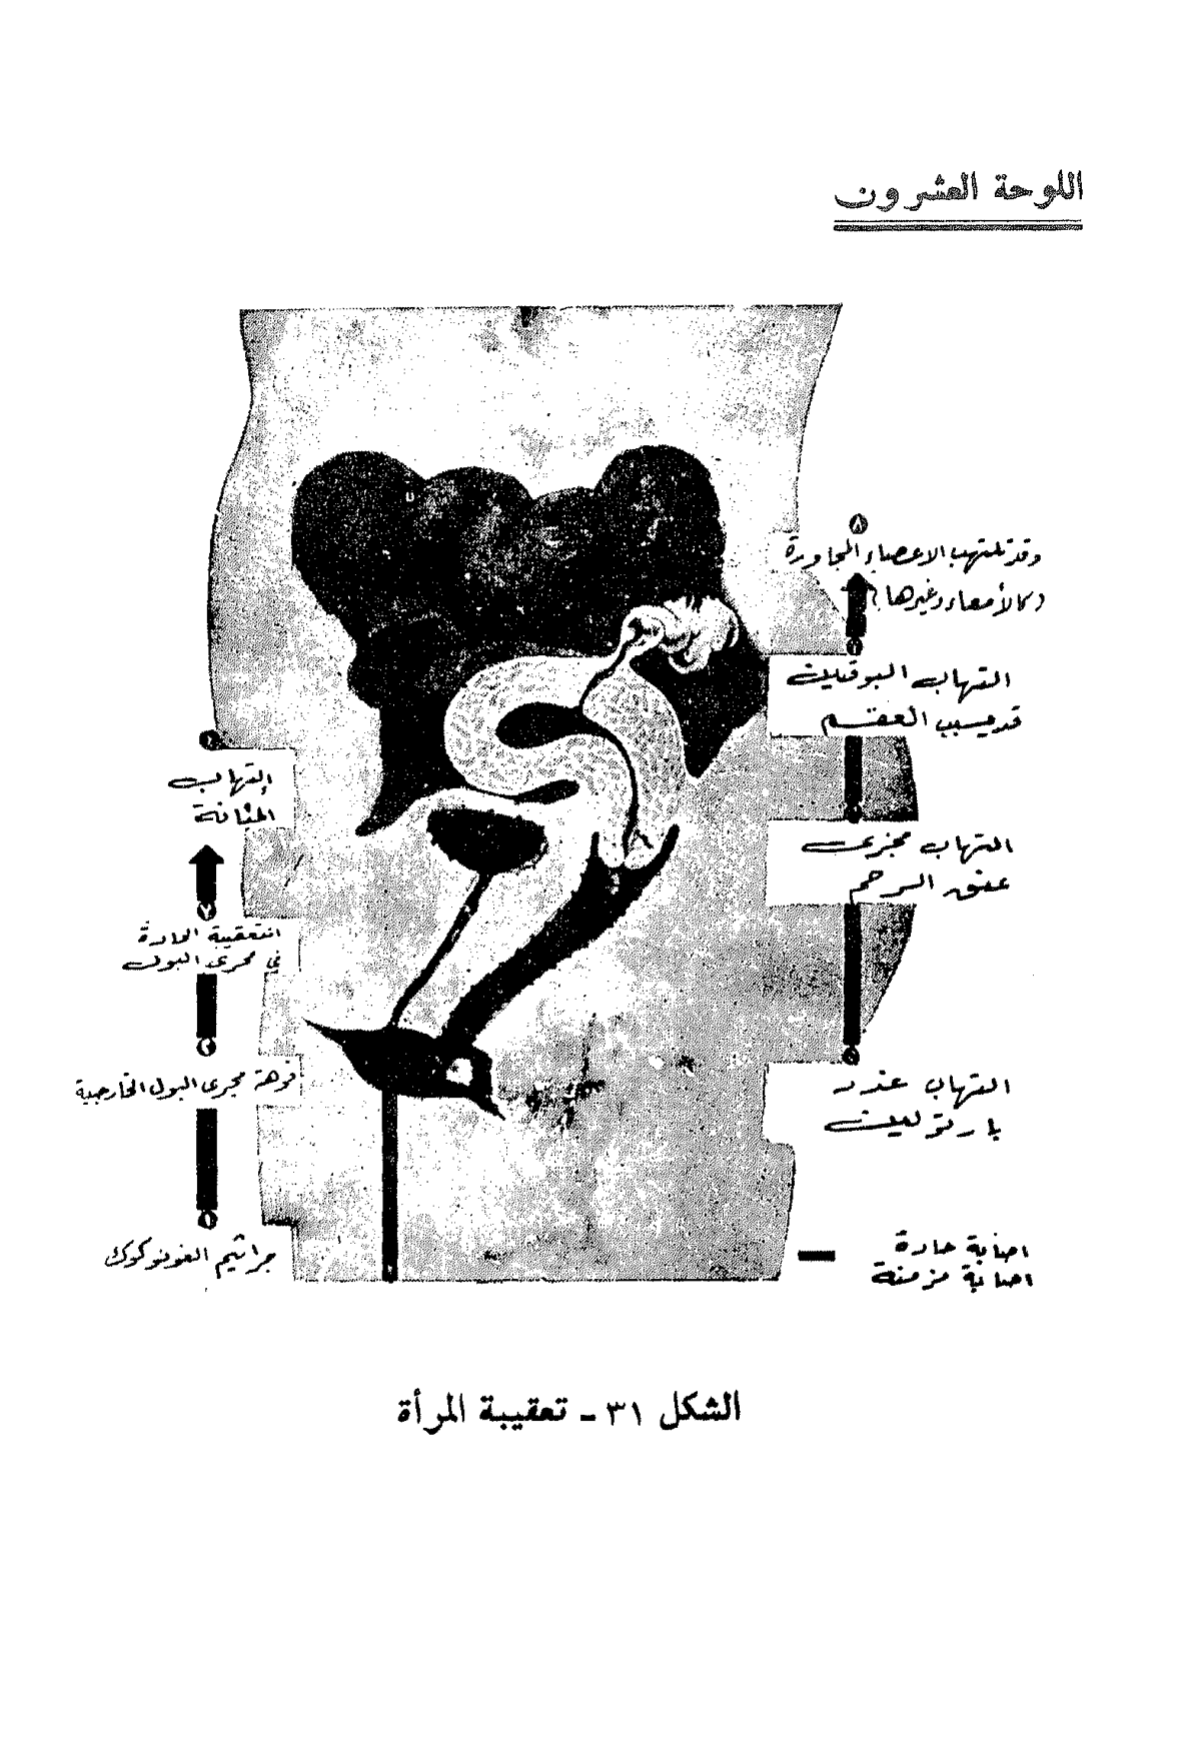 اللوحة العشرون
٨
وقد تلتهب الاعضاء المجاورة
(كالأمعاء وغيرها)
التهاب البوقين
قد يسبب العقم
التهاب مجرى
عنق الرحم
٥
التهاب غدد
بارتولين
اصابة حادة
اصابة مزمنة
إلتهاب
المثانة
التعقيبة الحادة
في مجرى البول
فوهة مجرى البول الخارجية
جراثيم الغونوكوك
الشكل ٣١ ـ تعقيبة المرأة